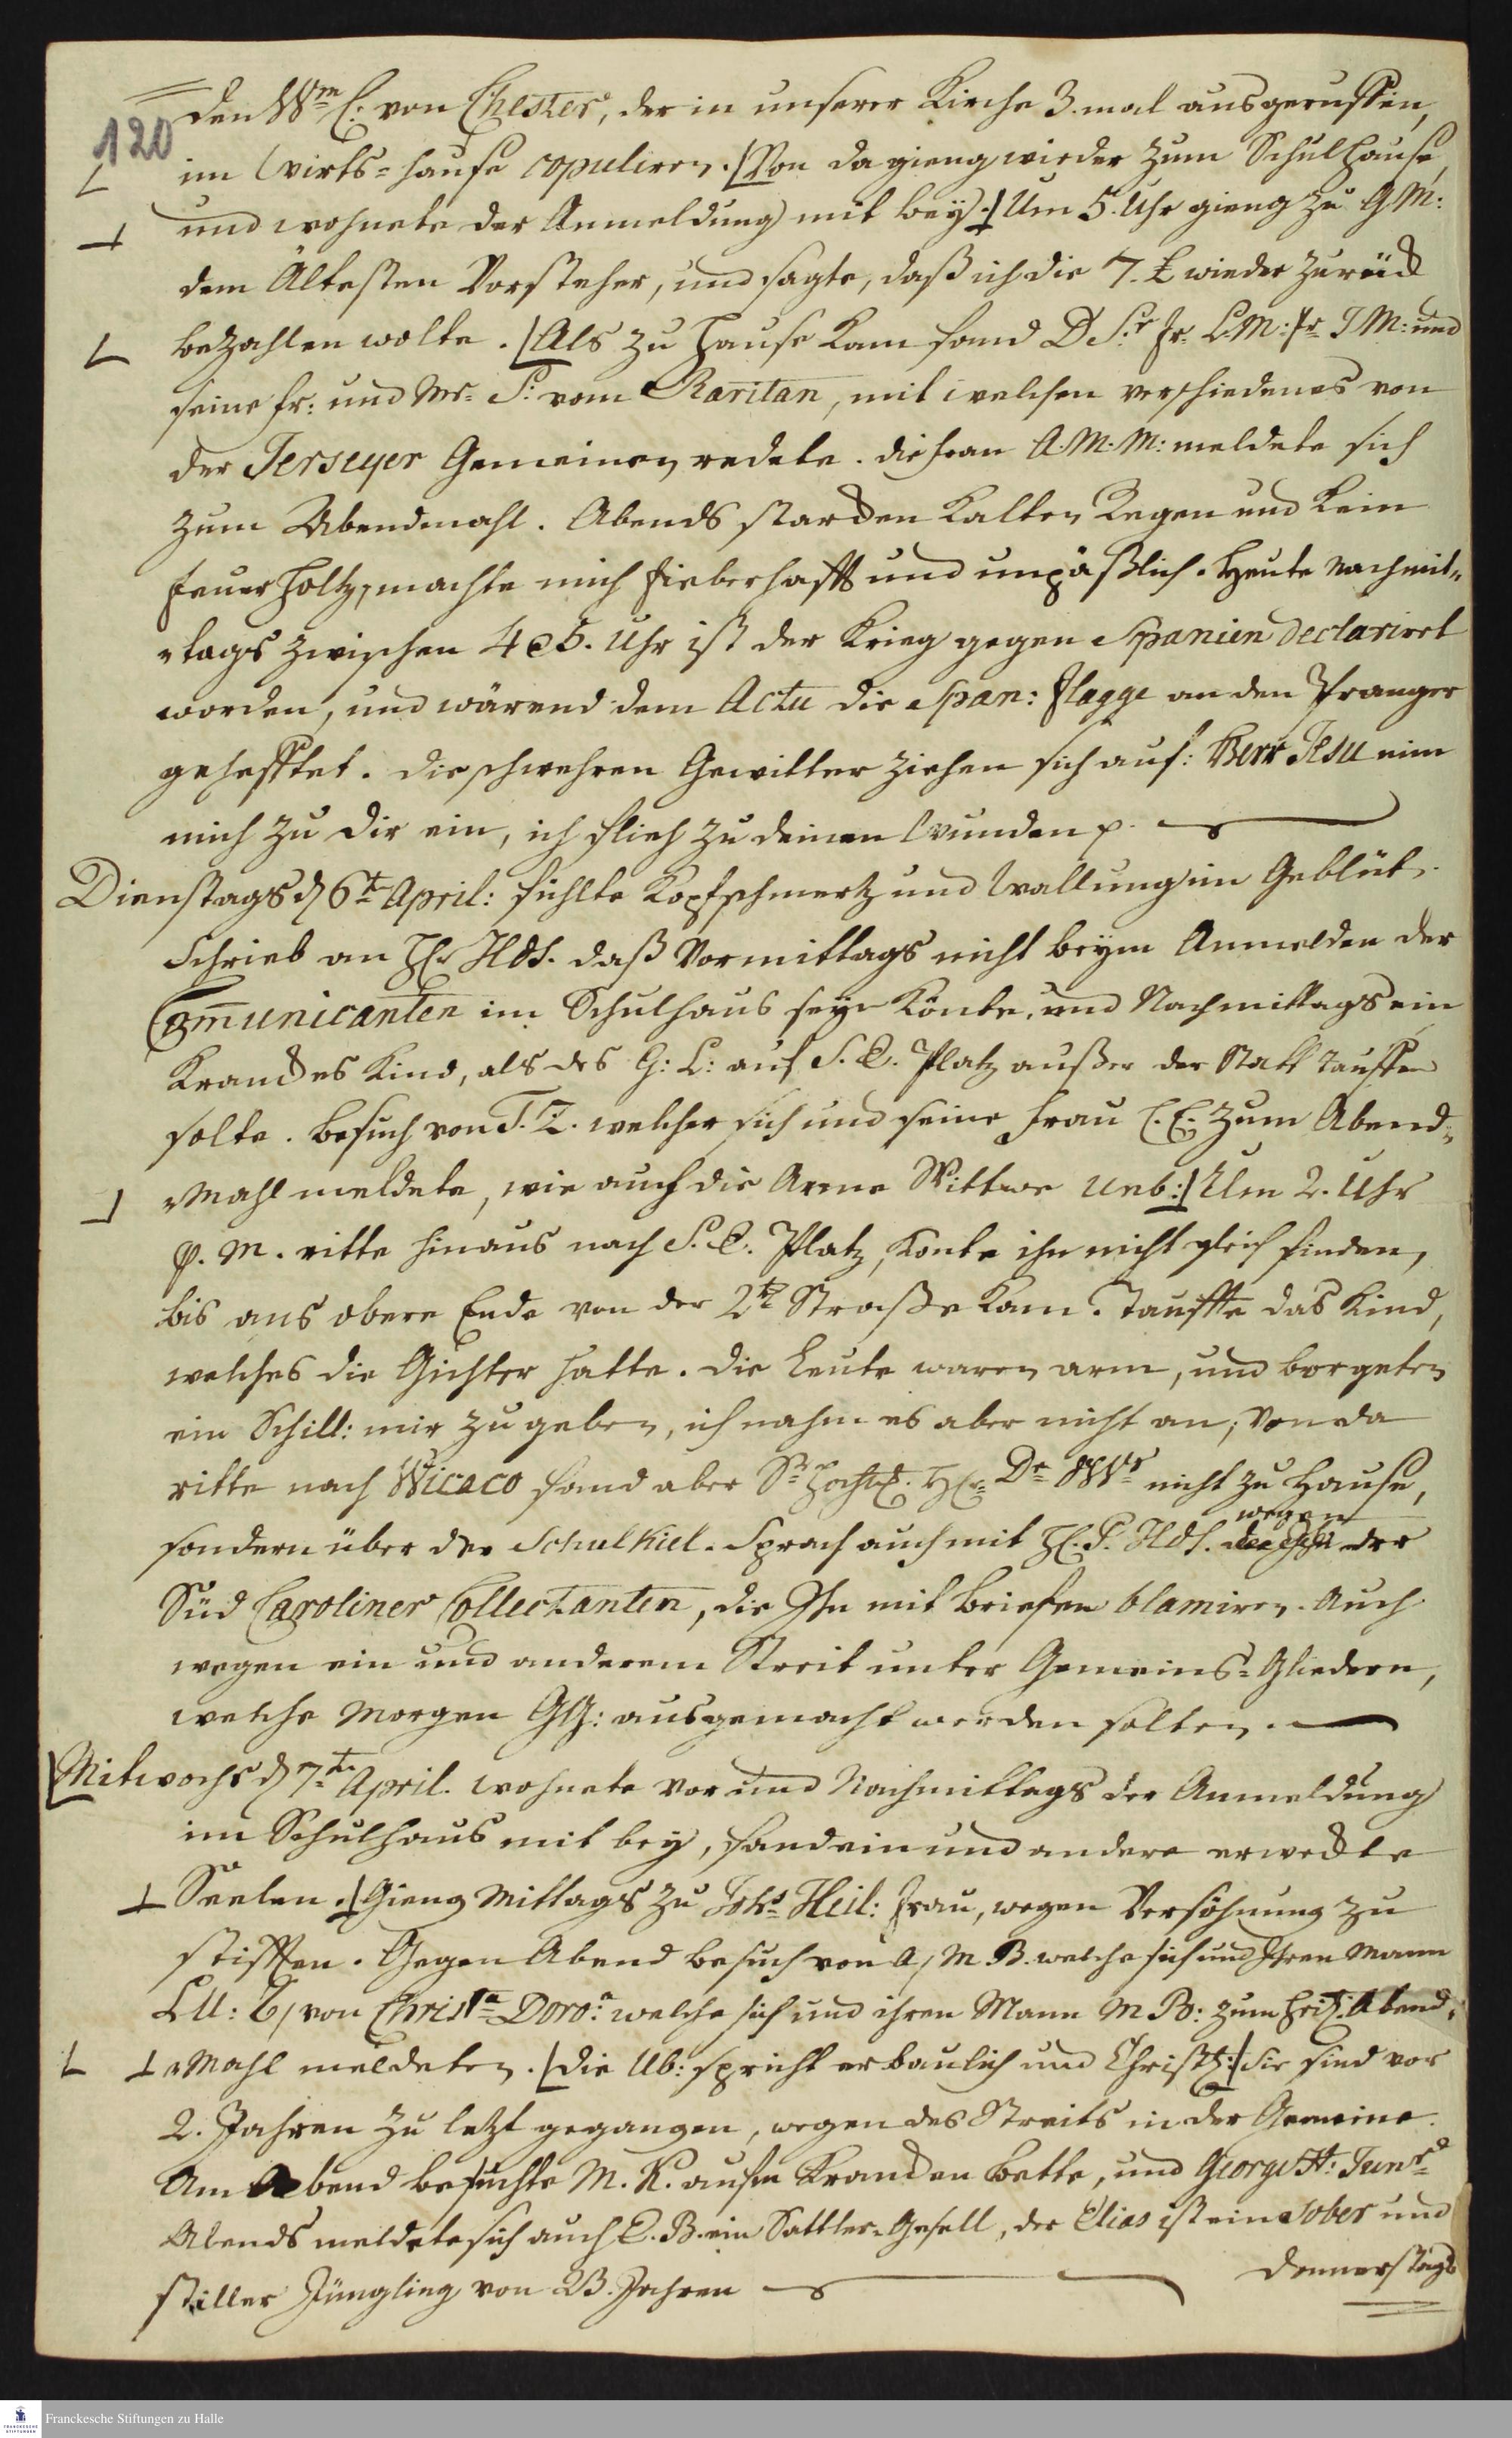 120
den Wm C: von Chester, der in unserer Kirche 3. mal ausgeruffen,
im Wirts=hause copuliren. Von da gieng wieder zum Schulhause,
und wohnete der Anmeldung mit bey. Um 5. Uhr gieng zu GM:
dem Ältesten Vorsteher, und sagte, daß ich die 7. £ wieder zurück
bezahlen wolte. Als zu Hause kam fand D Sr fr. L.M: fr J M: und
seine fr: und Mr. S: vom Raritan, mit welchen verschiedenes von
der Jerseyer Gemeinen redete. die frau A.M.M: meldete sich
zum Abendmahl. Abends starcken kalten Regen und kein
feuer holtz, machte mich fieberhafft und unpäßlich. Heute Nachmit„
„tags zwischen 4 & 5. Uhr ist der Krieg gegen Spanien declarirt
worden, und wärend dem Actu die Span: flagge an den Pranger
gehefftet. die schwehren Gewitter ziehen sich auf: Herr Jesu nim
mich zu dir ein, ich flieh zu deinen Wunden p.
Dienstags d 6t April: fühlte Kopfschmertz und Wallung im Geblüt.
Schrieb an H. Hds. daß Vormittags nicht beym Anmelden der
Communicanten im Schulhaus seyn könte, und Nachmittags ein
kranckes Kind, als des G: L: auf S. E. Platz außer der Statt tauffen
solte. Besuch von T. Z. welcher sich und seine frau C. E. zum Abend„
„Mahl meldete, wie auch die Arme Wittwe Ueb: Um 2. Uhr
p. M. ritte hinaus nach S. E. Platz, konte ihn nicht gleich finden,
bis ans obere Ende von der 2t Straße kam. Tauffte das Kind,
welches die Gichter hatte. die Leute waren arm, und borgeten
ein Schill: mir zu geben, ich nahm es aber nicht an; von da
ritte nach Wicaco fand aber Sr Hr Dr Wr nicht zu Hause,
sondern über der Schulkiel. Sprach auch mit H. P. Hds. wegen der
Süd Caroliner Collectanten, die Ihn mit Briefen blamiren. Auch
wegen ein und anderem Streit unter Gemeins=Gliedern,
welche Morgen GG: ausgemacht werden solten.
Mitwochs d 7t April. wohnete vor und Nachmittags der Anmeldung
im Schulhaus mit bey, fand ein und andere erweckte
Seelen. Gieng Mittags zu Johs Heil: frau, wegen Versöhnung zu
stifften. Gegen Abend besuch von a, M B. welche sich und Ihren Mann
LU: b, von Christa Doro: welche sich und ihren Mann M B: zum heil: Abend„
„Mahl meldeten. die Ub: spricht erbaulich und Christl: sie sind vor
2. Jahren zu letzt gegangen, wegen des Streits in der Gemeine.
Am Abend besuchte M. K. aufm krancken Bette, und George H: Junr
Abends meldete sich auch E. B. ein Sattler-Gesell, der Elias ist ein sober und
stiller Jüngling von 23. Jahren
Donnerstags
Franckesche Stiftungen zu Halle